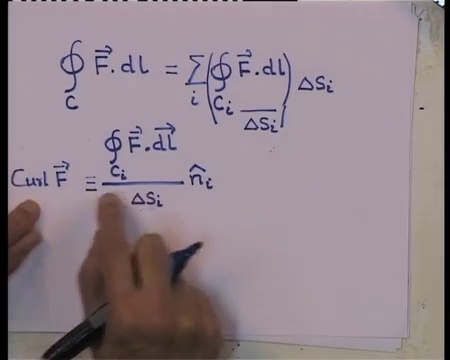 ∮_C F⃗.dl = ∑_i (∮_{C_i} F⃗.dl / ΔS_i) ΔS_i
Curl F⃗ ≡ ∮_{C_i} F⃗.dl⃗ / ΔS_i n̂_i